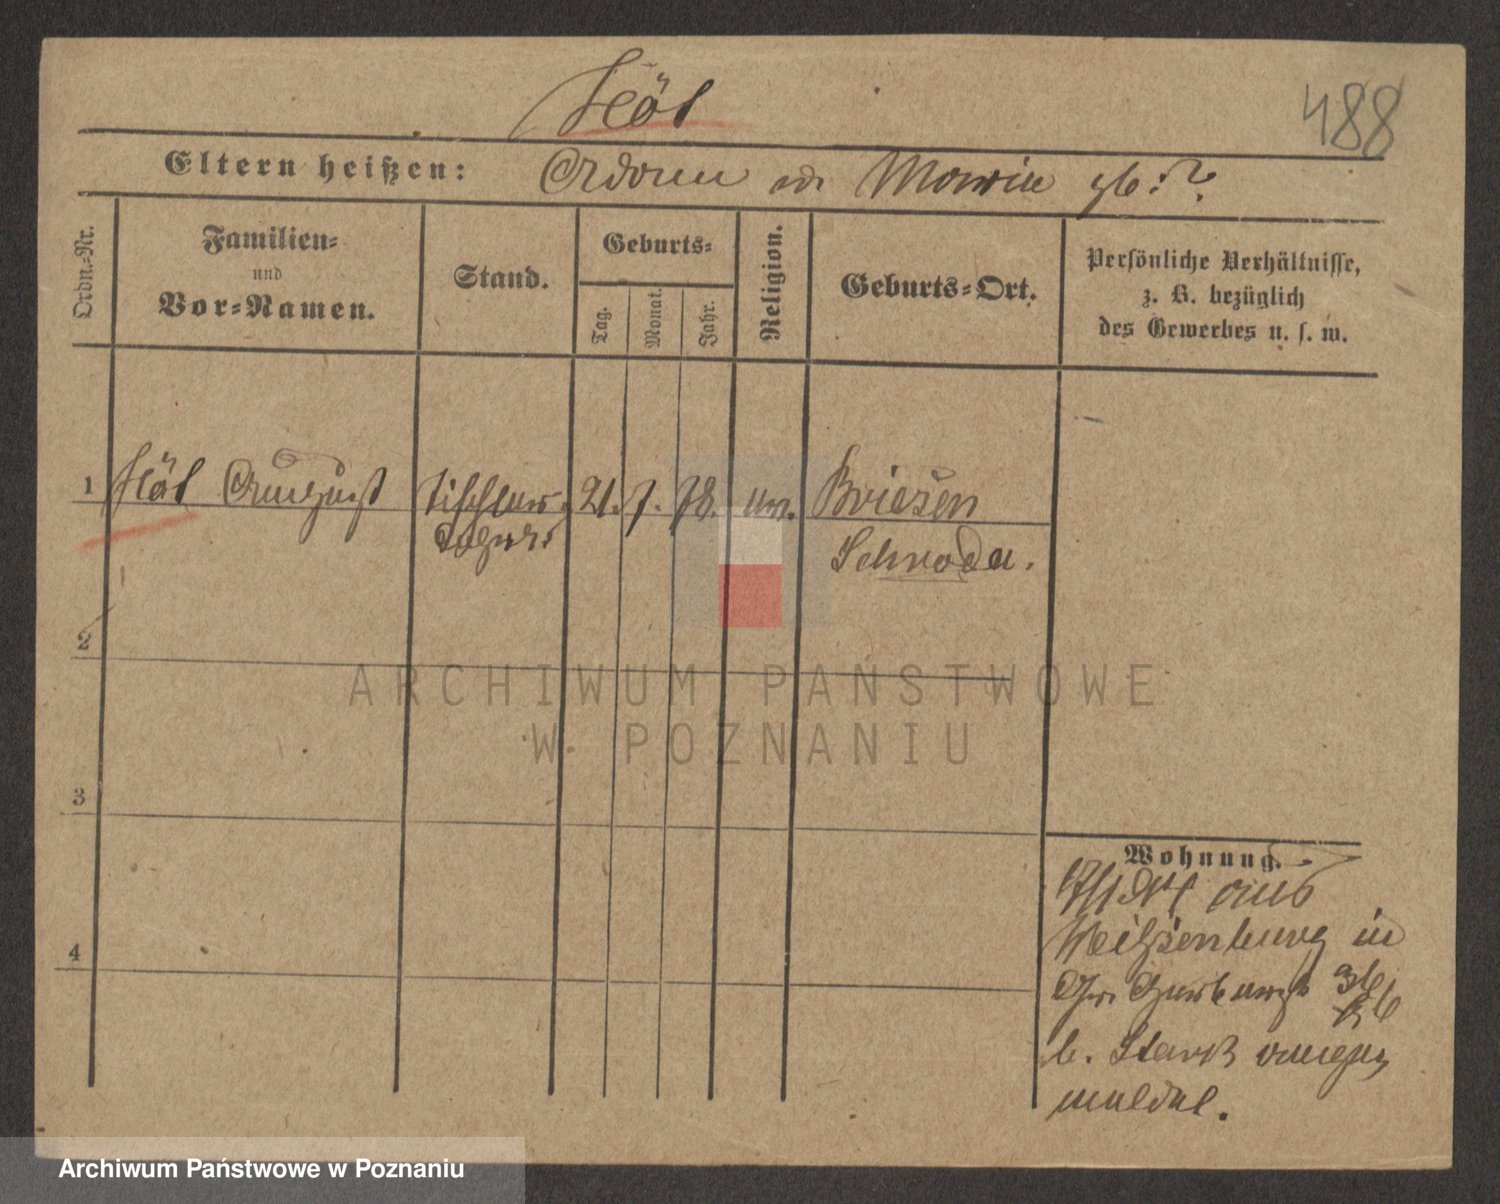 Köl
488
Eltern heißen: Adam od. Maria gb: ?
Ordn.-Nr.
Familien-
und
Vor-Namen.
Stand.
Geburts-
Tag.
Monat.
Jahr.
Religion.
Geburts-Ort.
Persönliche Verhältnisse,
z. B. bezüglich
des Gewerbes u. s. w.
1 Köl August Tischler 21. 7. 78. Briesen
Schroda.
2
3
4
Wohnung.
aus
Weißenburg in
36
b. Stark angem
meldet.
ARCHIWUM PAŃSTWOWE
W POZNANIU
Archiwum Państwowe w Poznaniu